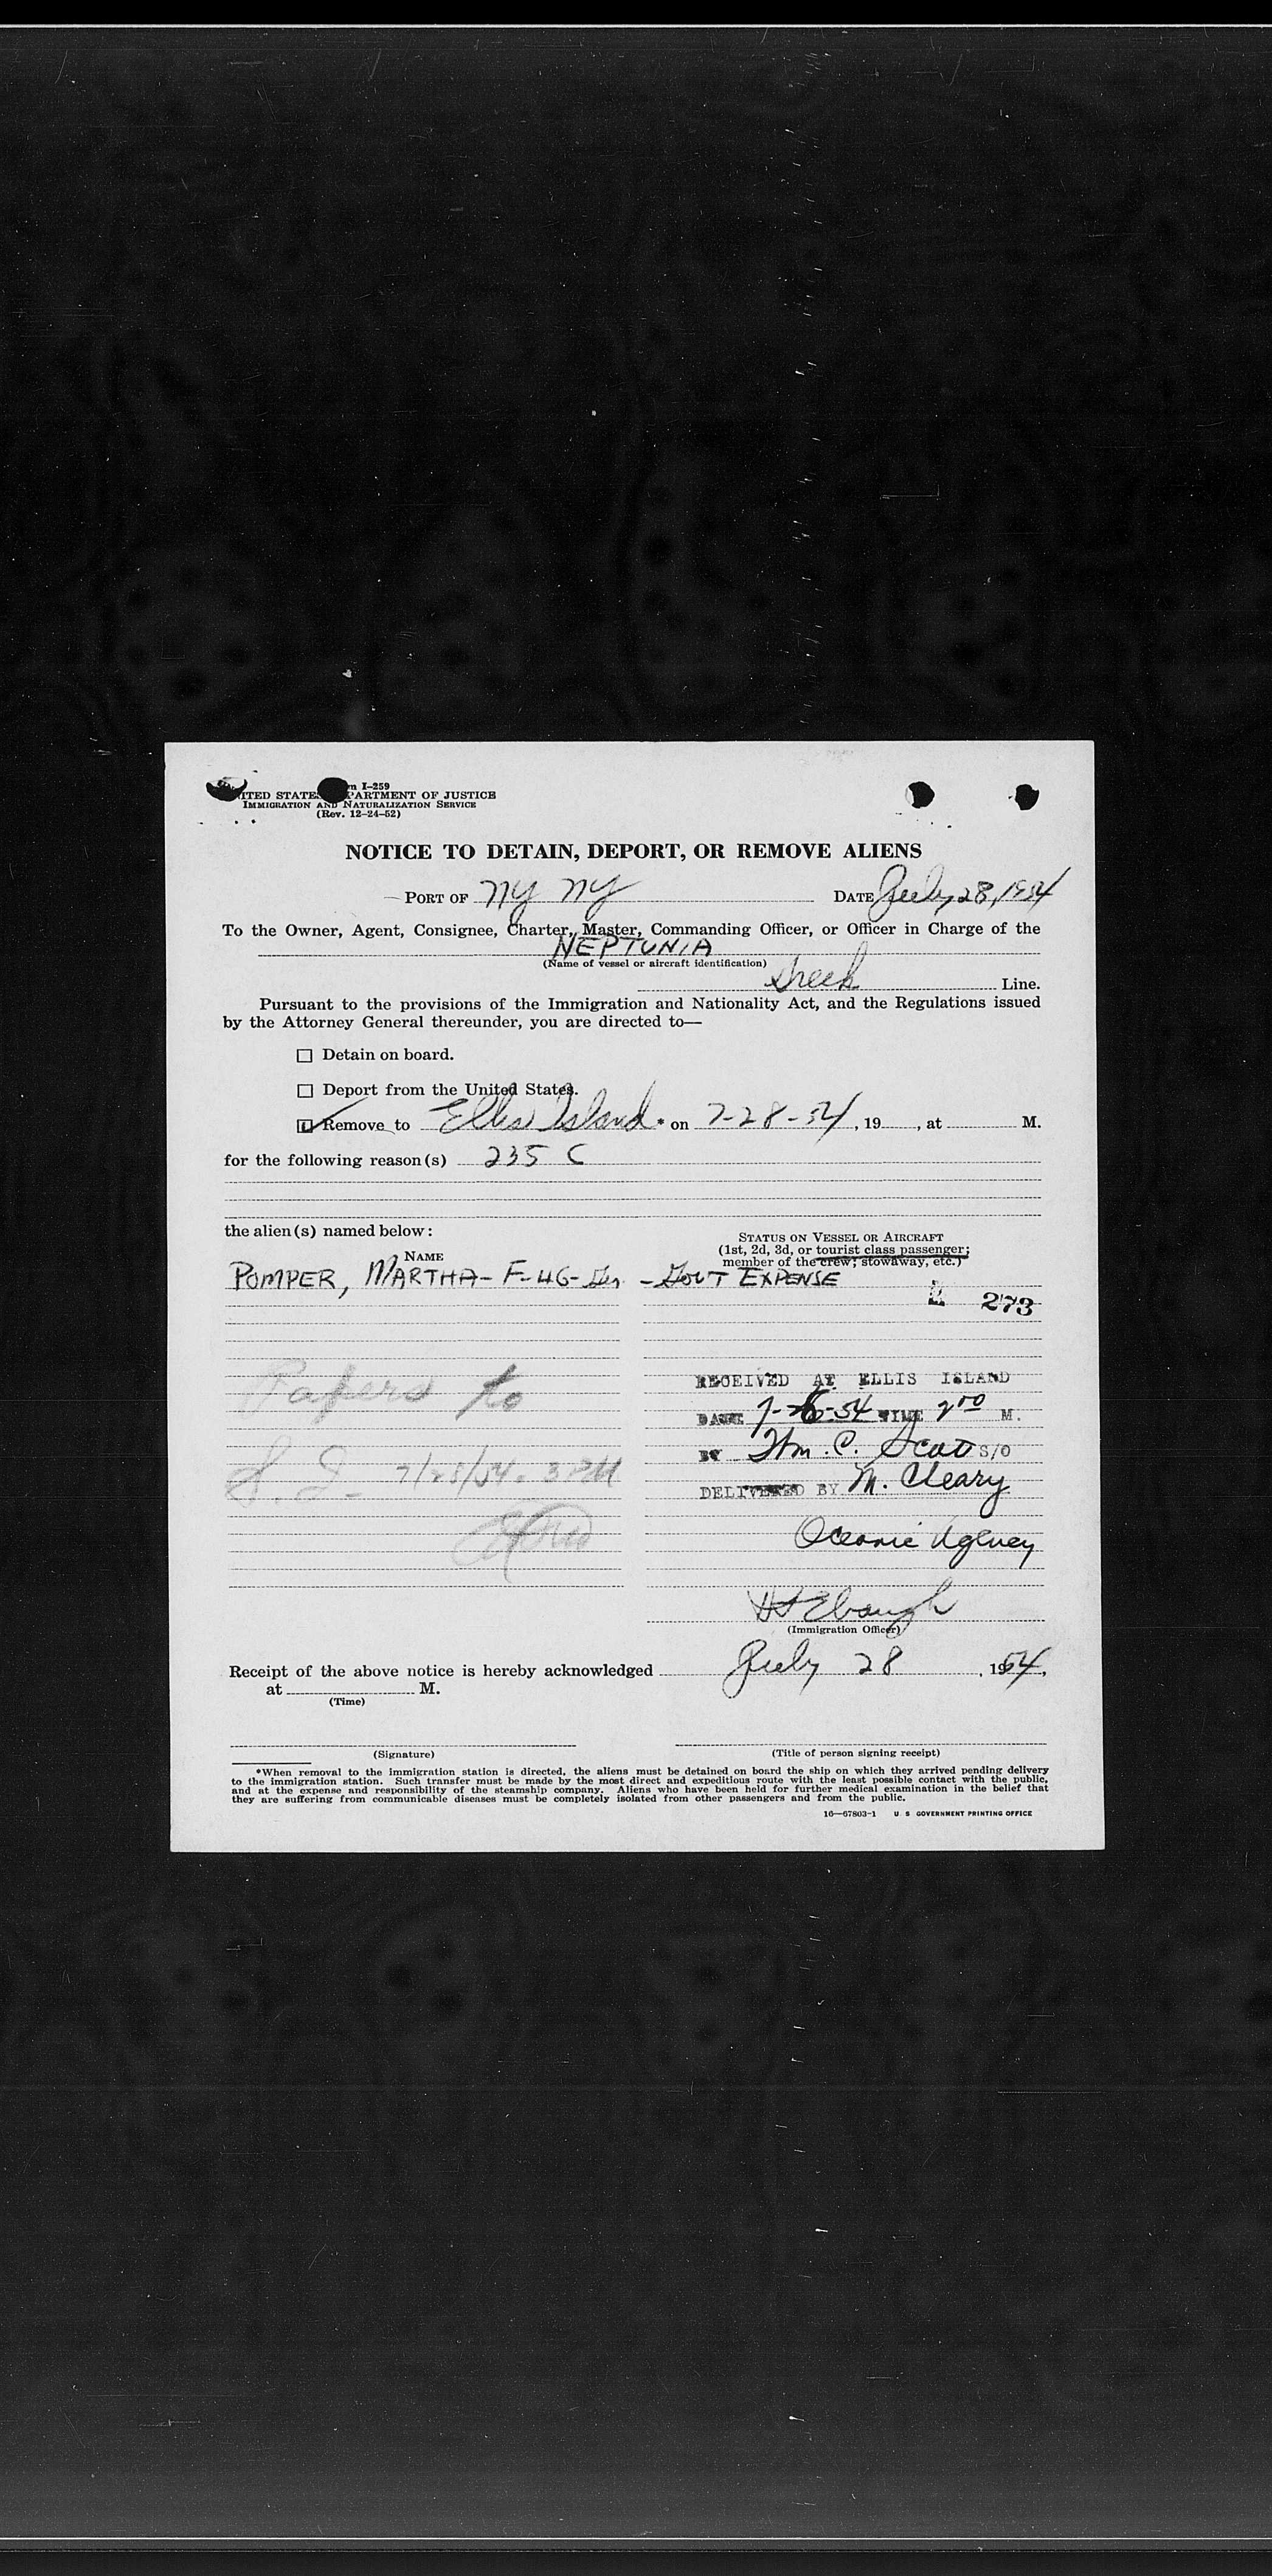 Form I-259
UNITED STATES DEPARTMENT OF JUSTICE
IMMIGRATION AND NATURALIZATION SERVICE
(Rev. 12-24-52)
NOTICE TO DETAIN, DEPORT, OR REMOVE ALIENS
PORT OF NY NY DATE July 28, 1954
To the Owner, Agent, Consignee, Charter, Master, Commanding Officer, or Officer in Charge of the
NEPTUNIA
(Name of vessel or aircraft identification)
Greek Line.
Pursuant to the provisions of the Immigration and Nationality Act, and the Regulations issued
by the Attorney General thereunder, you are directed to—
☐ Detain on board.
☐ Deport from the United States.
☑ Remove to Ellis Island * on 7-28-54, 19____, at ____ M.
for the following reason(s) 235 C
the alien(s) named below:
NAME
STATUS ON VESSEL OR AIRCRAFT
(1st, 2d, 3d, or tourist class passenger;
member of the crew; stowaway, etc.)
POMPER, MARTHA - F - 46 - Ger - GOVT EXPENSE
273
Papers to
S. I. 7/28/54. 3 PM
RECEIVED AT ELLIS ISLAND
DATE 7-28-54 TIME 2 00 M.
BY Wm. C. Scott S/O
DELIVERED BY M. Cleary
Oceanic Agency
Ebaugh
(Immigration Officer)
Receipt of the above notice is hereby acknowledged July 28, 1954.
at ____ M.
(Time)
(Signature) (Title of person signing receipt)
*When removal to the immigration station is directed, the aliens must be detained on board the ship on which they arrived pending delivery
to the immigration station. Such transfer must be made by the most direct and expeditious route with the least possible contact with the public,
and at the expense and responsibility of the steamship company. Aliens who have been held for further medical examination in the belief that
they are suffering from communicable diseases must be completely isolated from other passengers and from the public.
16—67803-1 U S GOVERNMENT PRINTING OFFICE